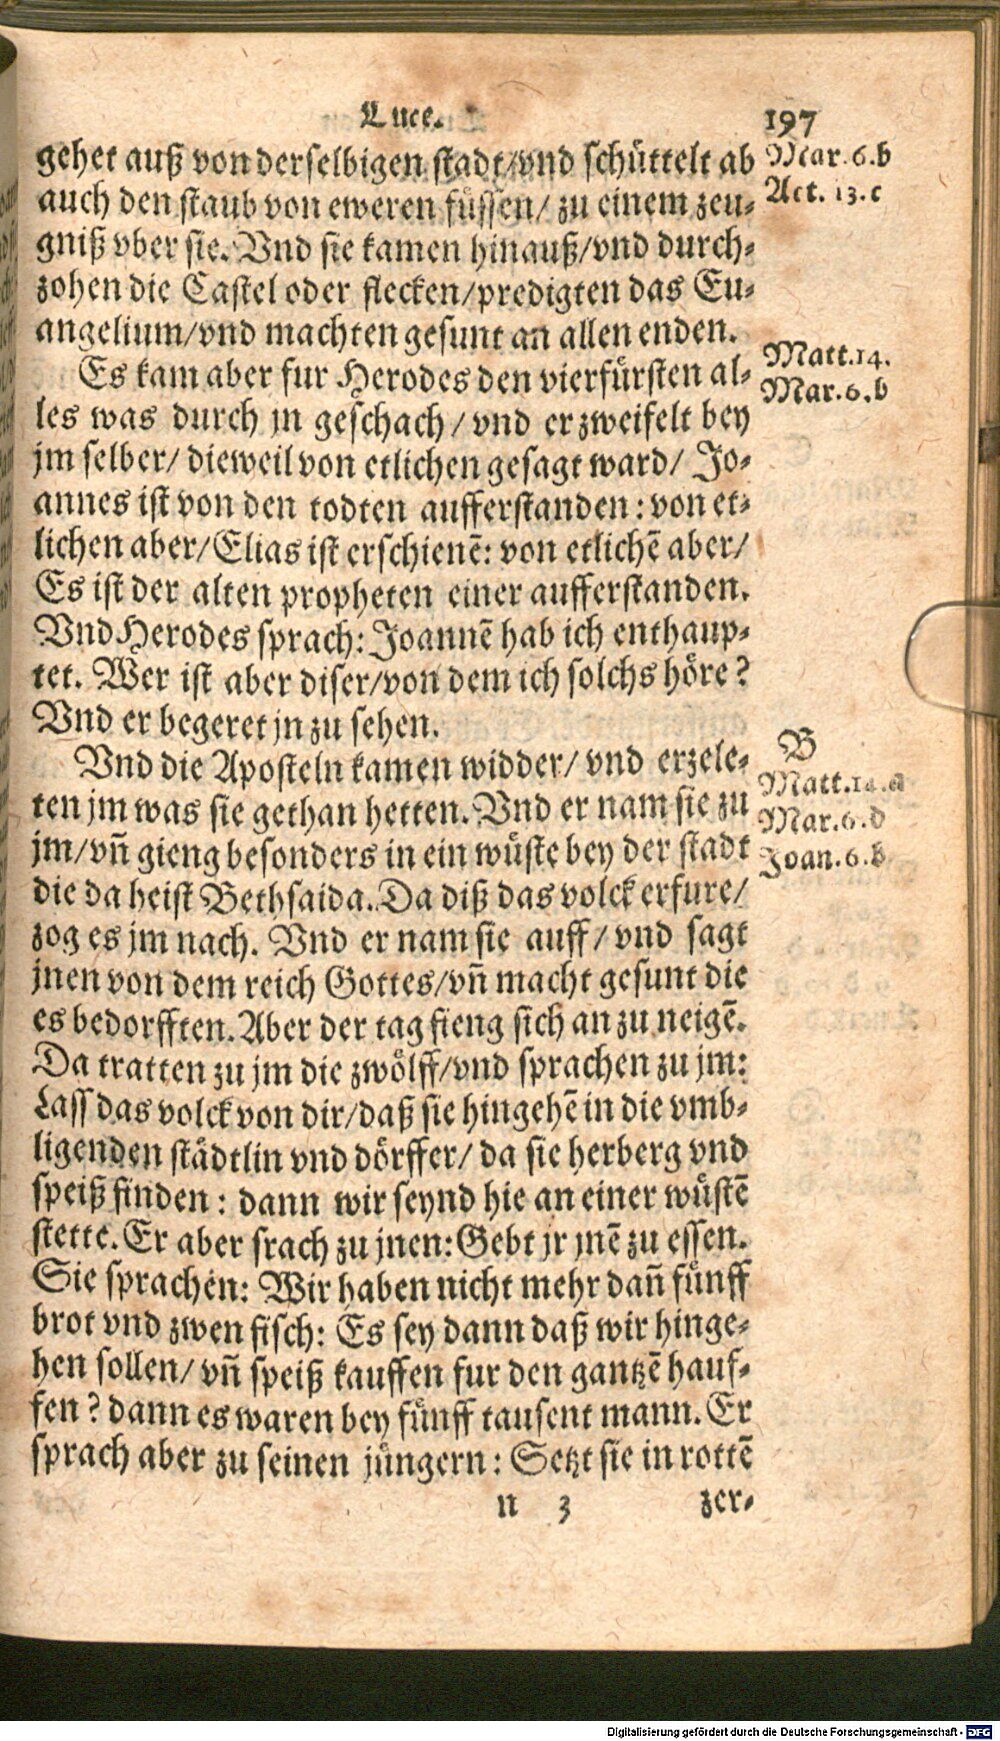 Luce.
197
gehet auß von derselbigen stadt/vnd schüttelt ab
auch den staub von eweren füssen/ zu einem zeu-
gniß vber sie. Vnd sie kamen hinauß/vnd durch-
zohen die Castel oder flecken/predigten das Eu-
angelium/vnd machten gesunt an allen enden.
Es kam aber fur Herodes den vierfürsten al-
les was durch jn geschach / vnd er zweifelt bey
jm selber/ dieweil von etlichen gesagt ward/ Jo-
annes ist von den todten aufferstanden: von et-
lichen aber/Elias ist erschienē: von etlichē aber/
Es ist der alten propheten einer aufferstanden.
Vnd Herodes sprach: Joannē hab ich enthaup-
tet. Wer ist aber diser/von dem ich solchs höre?
Vnd er begeret jn zu sehen.
Vnd die Aposteln kamen widder/ vnd erzele-
ten jm was sie gethan hetten. Vnd er nam sie zu
jm/vñ gieng besonders in ein wüste bey der stadt
die da heist Bethsaida. Da diß das volck erfure/
zog es jm nach. Vnd er nam sie auff/ vnd sagt
jnen von dem reich Gottes/vñ macht gesunt die
es bedorfften. Aber der tag fieng sich an zu neigē.
Da tratten zu jm die zwölff/vnd sprachen zu jm:
Lass das volck von dir/daß sie hingehē in die vmb-
ligenden städtlin vnd dörffer/ da sie herberg vnd
speiß finden: dann wir seynd hie an einer wüstē
stette. Er aber srach zu jnen: Gebt jr jnē zu essen.
Sie sprachen: Wir haben nicht mehr dañ fünff
brot vnd zwen fisch: Es sey dann daß wir hinge-
hen sollen/ vñ speiß kauffen fur den gantzē hauf-
fen? dann es waren bey fünff tausent mann. Er
sprach aber zu seinen jüngern: Setzt sie in rottē
n 3
zer-
Mar. 6. b
Act. 13. c
Matt. 14.
Mar. 6. b
B
Matt. 14. a
Mar. 6. d
Joan. 6. b
Digitalisierung gefördert durch die Deutsche Forschungsgemeinschaft - DFG